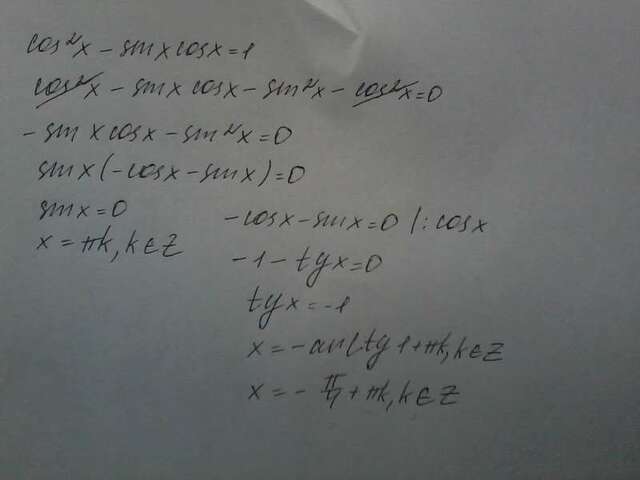 cos²x - sinx cosx = 1
cos²x - sinx cosx - sin²x - cos²x = 0
- sinx cosx - sin²x = 0
sinx (-cosx - sinx) = 0
sinx = 0
x = πk, k∈Z
-cosx - sinx = 0 | : cosx
-1 - tgx = 0
tgx = -1
x = - arctg 1 + πk, k∈Z
x = - π/4 + πk, k∈Z